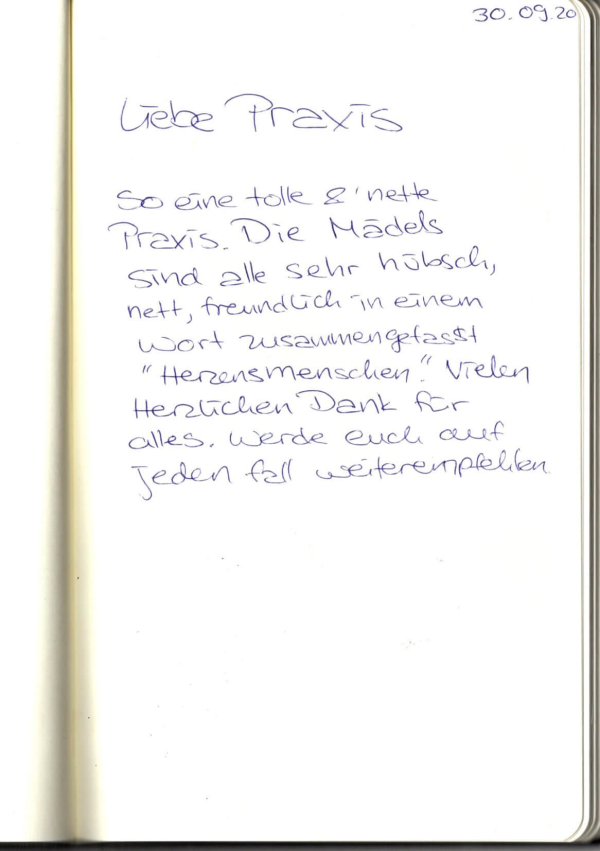 30.09.20
Liebe Praxis
So eine tolle & nette
Praxis. Die Mädels
sind alle sehr hübsch,
nett, freundlich in einem
Wort zusammengefasst
"Herzensmenschen." Vielen
Herzlichen Dank für
alles. Werde euch auf
jeden fall weiterempfehlen